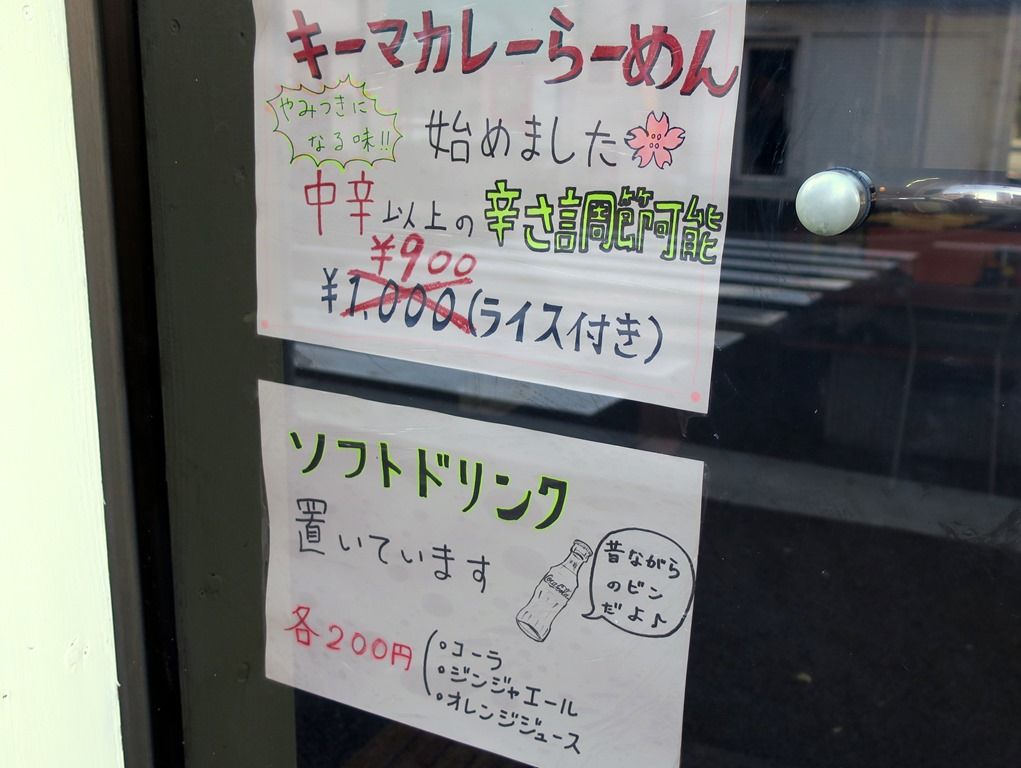 キーマカレーらーめん
やみつきに
なる味!!
始めました
中辛以上の辛さ調節可能
¥900
¥1,000(ライス付き)
ソフトドリンク
置いています
Coca-Cola
昔ながら
のビン
だよ♪
各200円
・コーラ
・ジンジャエール
・オレンジジュース